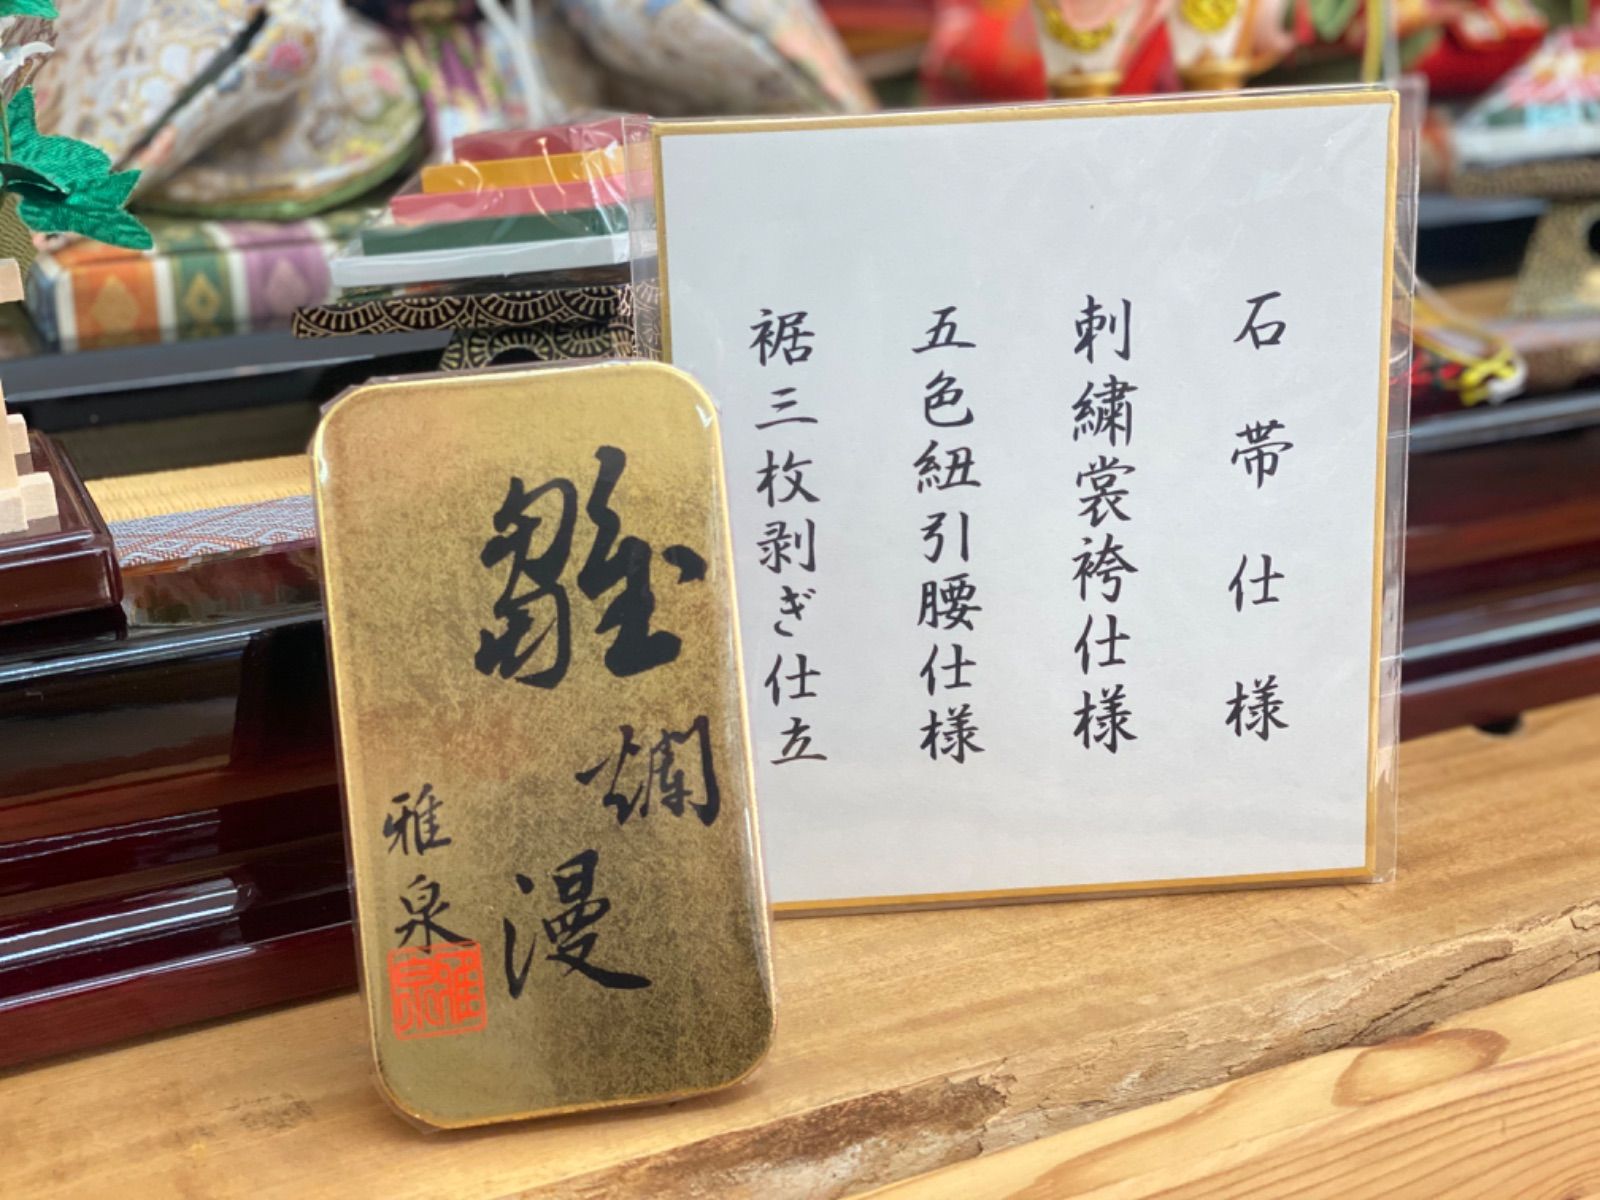 石帯仕様
刺繍裳袴仕様
五色紐引腰仕様
裾三枚剥ぎ仕立
雛爛漫
雅泉
雅泉